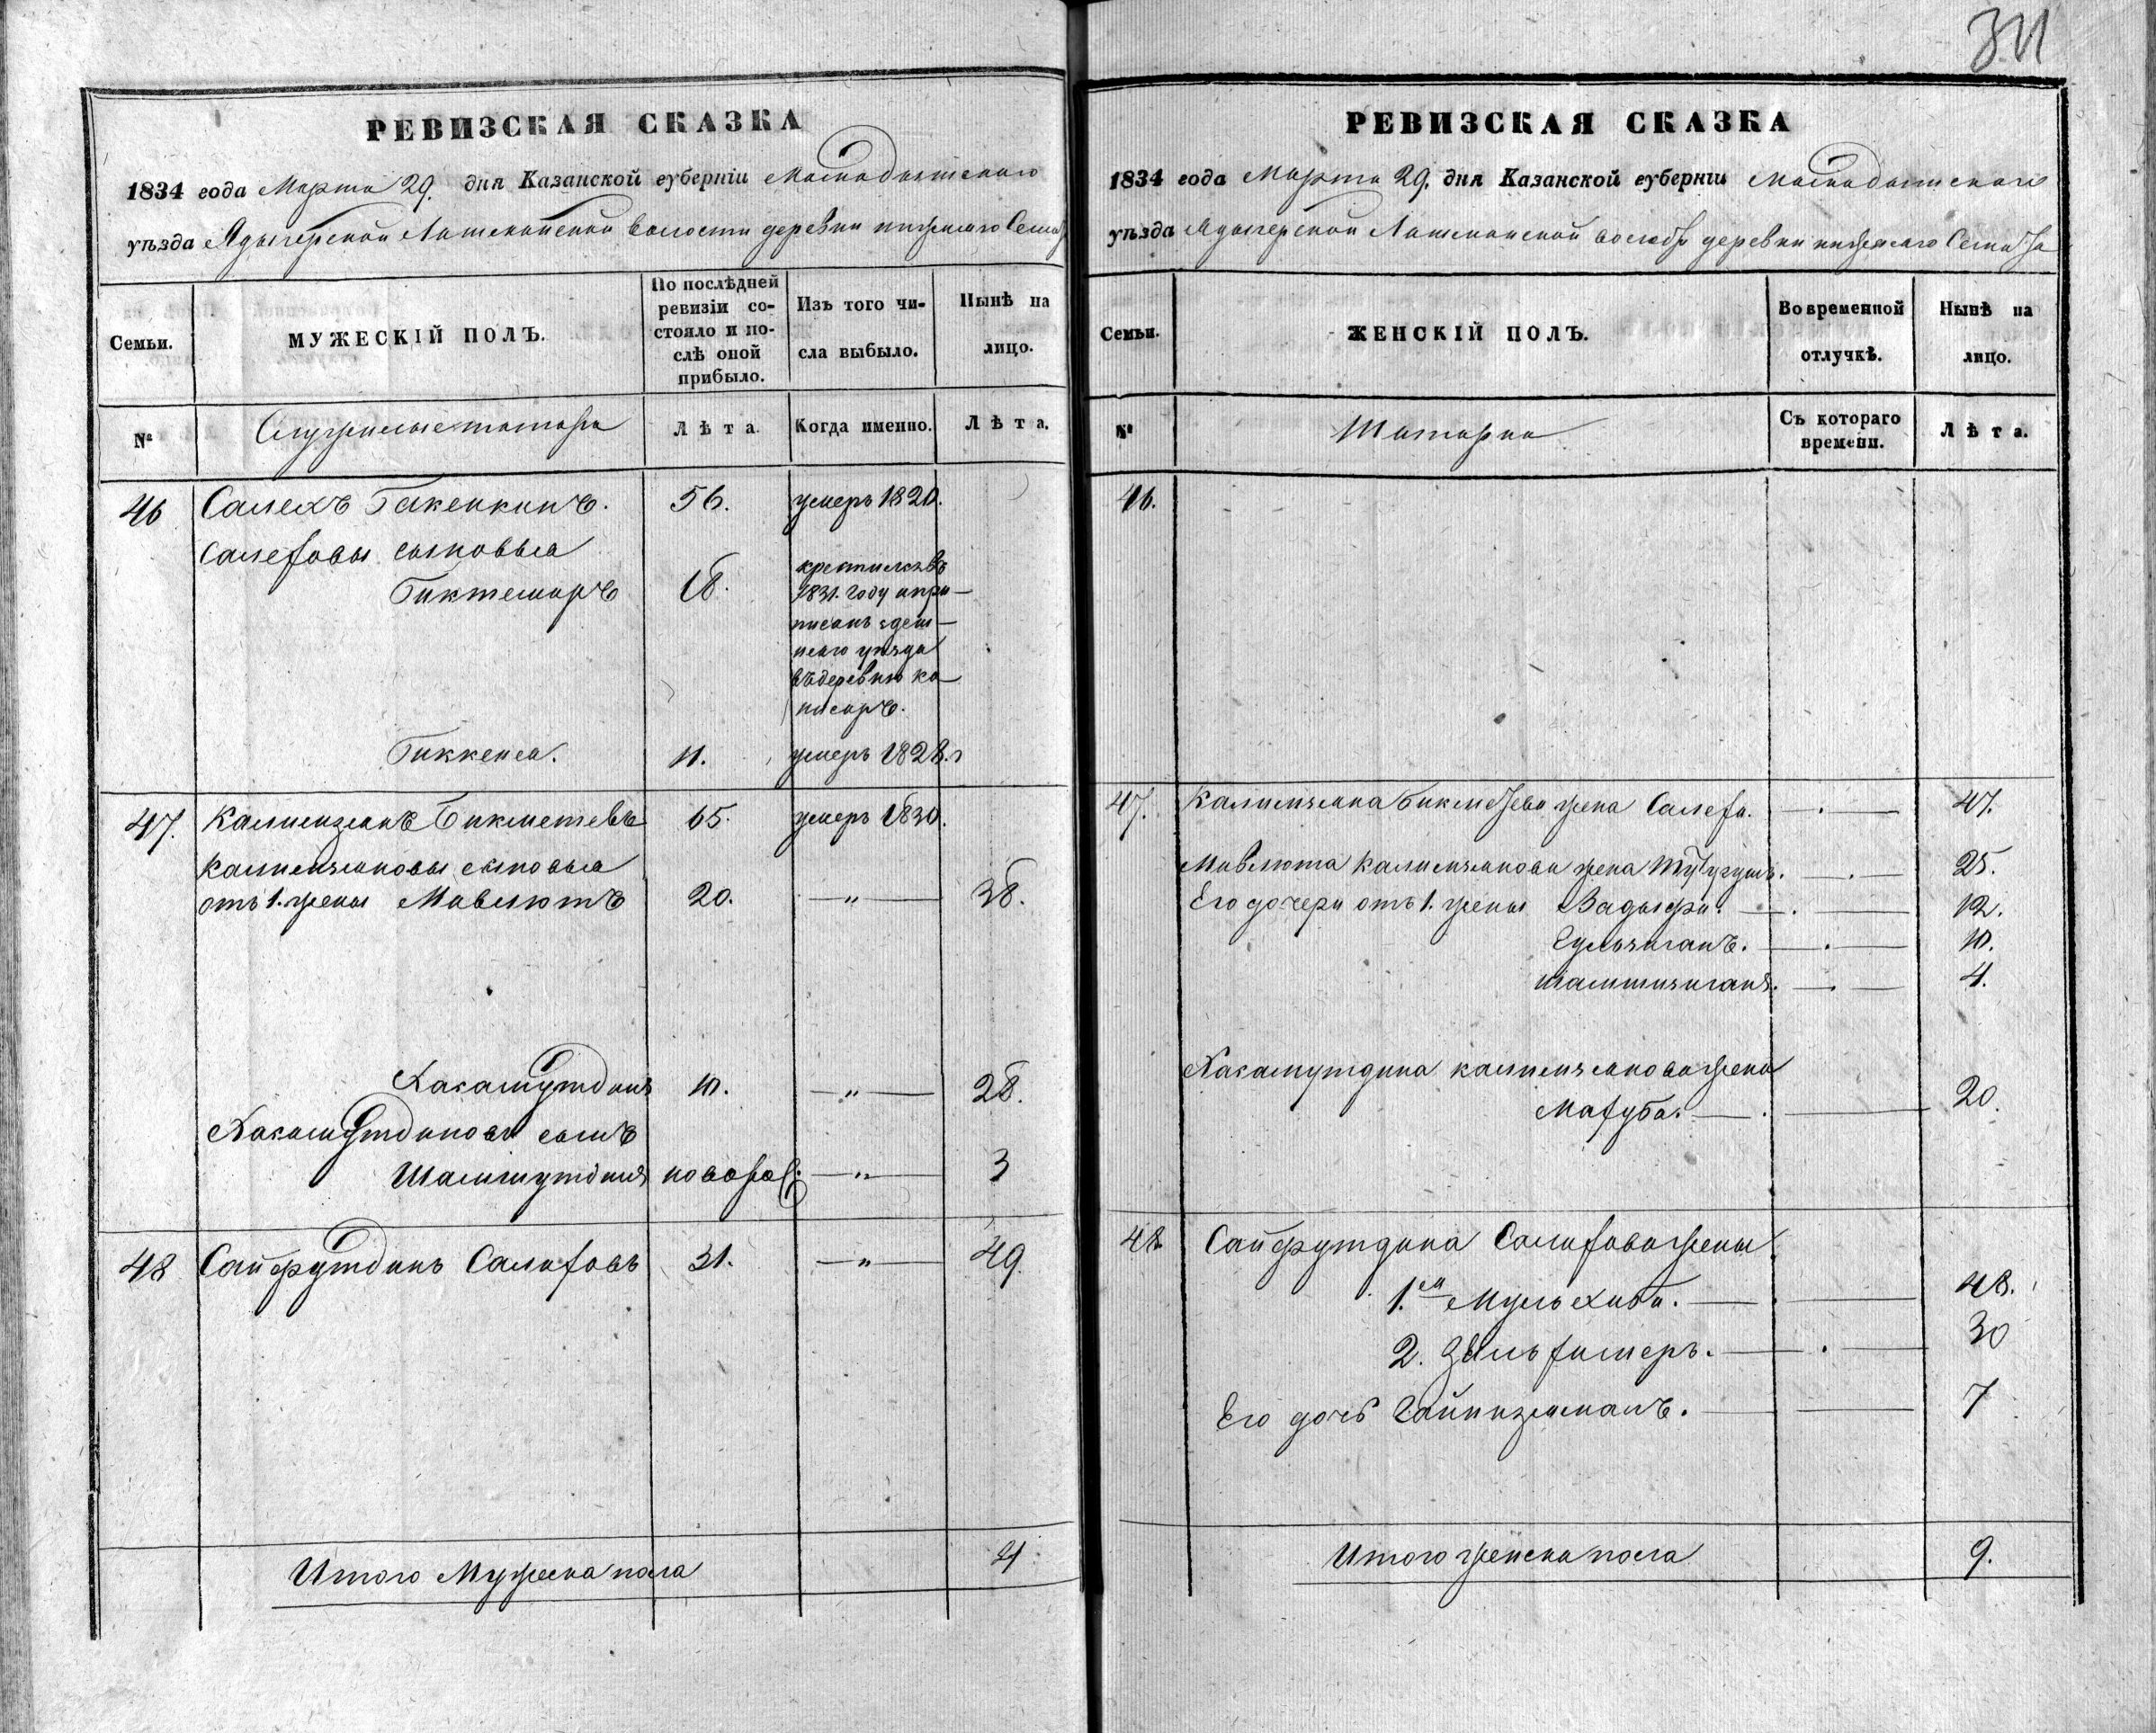 311
РЕВИЗСКАЯ СКАЗКА
1834 года Марта 29. дня Казанской губерніи Мамадышскаго
уѣзда Адыгерской Лашманской волости деревни нижняго
Семьи.
МУЖЕСКІЙ ПОЛЪ.
По послѣдней ревизіи состояло и послѣ оной прибыло.
Изъ того числа выбыло.
Нынѣ на лицо.
№
Служилые татара
Лѣта.
Когда именно.
Лѣта.
46 Салехъ Бикенкинъ. 56. умеръ 1820.
Салеховы сыновья
Биктемиръ 18. крестился въ
1831. году и при-
писанъ здеш-
няго уѣзда
въ деревню
Биккеня. 11. умеръ 1828.г
47. Калимзянъ Бикметевъ 65. умеръ 1830.
Калимзяновы сыновья
отъ 1. жены Мавлютъ 20. — „ — 38.
Хисамутдинъ 10. — „ — 28.
Хисамутдиновъ сынъ
Шамшутдинъ новорож: — „ — 3
48 Сайфутдинъ Салиховъ 31. — „ — 49.
Итого Мужеска пола 4
РЕВИЗСКАЯ СКАЗКА
1834 года Марта 29. дня Казанской губерніи Мамадышскаго
уѣзда Адыгерской Лашманской деревни нижняго
Семьи.
ЖЕНСКІЙ ПОЛЪ.
Во временной отлучкѣ.
Нынѣ на лицо.
№
Татарки
Съ котораго времени.
Лѣта.
46.
47. Калимзяна Бикметева жена Салеха. — . — 47.
Мавлюта Калимзянова жена — . — 25.
Его дочери отъ 1. жены — . — 12.
— . — 10.
— . — 4.
Хисамутдина Калимзянова жена
Махуба. — . — 20.
48 Сайфутдина Салихова жены
1.ая — . — 48.
2. — . — 30
Его дочь — — 7
Итого женска пола 9.